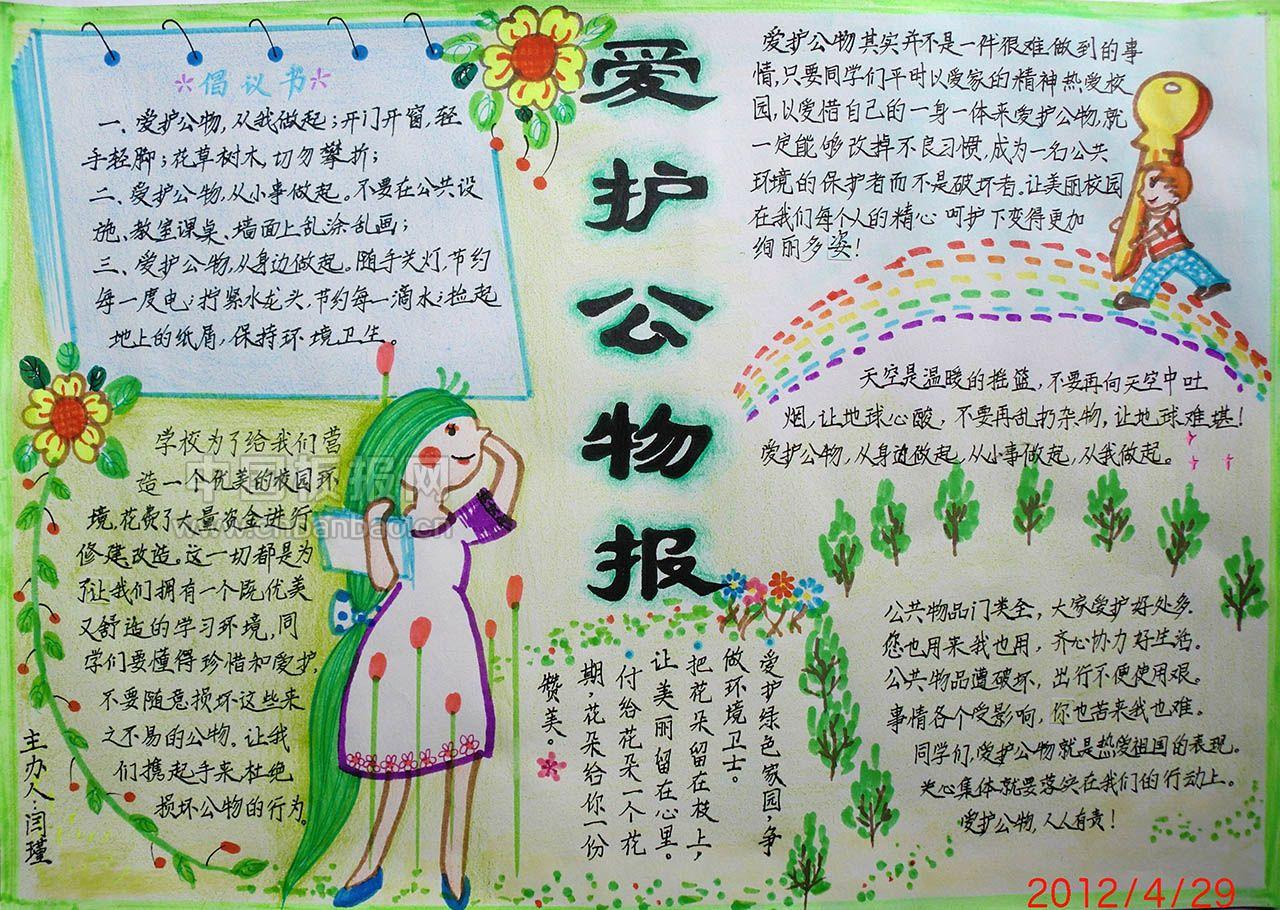 爱护公物报
倡议书
一、爱护公物，从我做起；开门开窗，轻
手轻脚；花草树木，切勿攀折；
二、爱护公物，从小事做起。不要在公共设
施、教室课桌、墙面上乱涂乱画；
三、爱护公物，从身边做起。随手关灯，节约
每一度电；拧紧水龙头，节约每一滴水；捡起
地上的纸屑，保持环境卫生。
学校为了给我们营
造一个优美的校园环
境，花费了大量资金进行
修建改造。这一切都是为
了让我们拥有一个既优美
又舒适的学习环境，同
学们要懂得珍惜和爱护，
不要随意损坏这些来
之不易的公物。让我
们携起手来，杜绝
损坏公物的行为。
主办人：闫瑾
爱护公物其实并不是一件很难做到的事
情，只要同学们平时以爱家的精神热爱校
园，以爱惜自己的一身一体来爱护公物，就
一定能够改掉不良习惯，成为一名公共
环境的保护者而不是破坏者。让美丽校园
在我们每个人的精心呵护下变得更加
绚丽多姿！
天空是温暖的摇篮，不要再向天空中吐
烟，让地球心酸，不要再乱扔杂物，让地球难堪！
爱护公物，从身边做起，从小事做起，从我做起。
爱护绿色家园，争
做环境卫士。
把花朵留在枝上，
让美丽留在心里。
付给花朵一个花
期，花朵给你一份
赞美。
公共物品门类全，大家爱护好处多。
您也用来我也用，齐心协力好生活。
公共物品遭破坏，出行不便使用艰。
事情各个受影响，你也苦来我也难。
同学们，爱护公物就是热爱祖国的表现。
关心集体就要落实在我们的行动上。
爱护公物，人人有责！
中国板报网
www.chbanbao.cn
2012/4/29